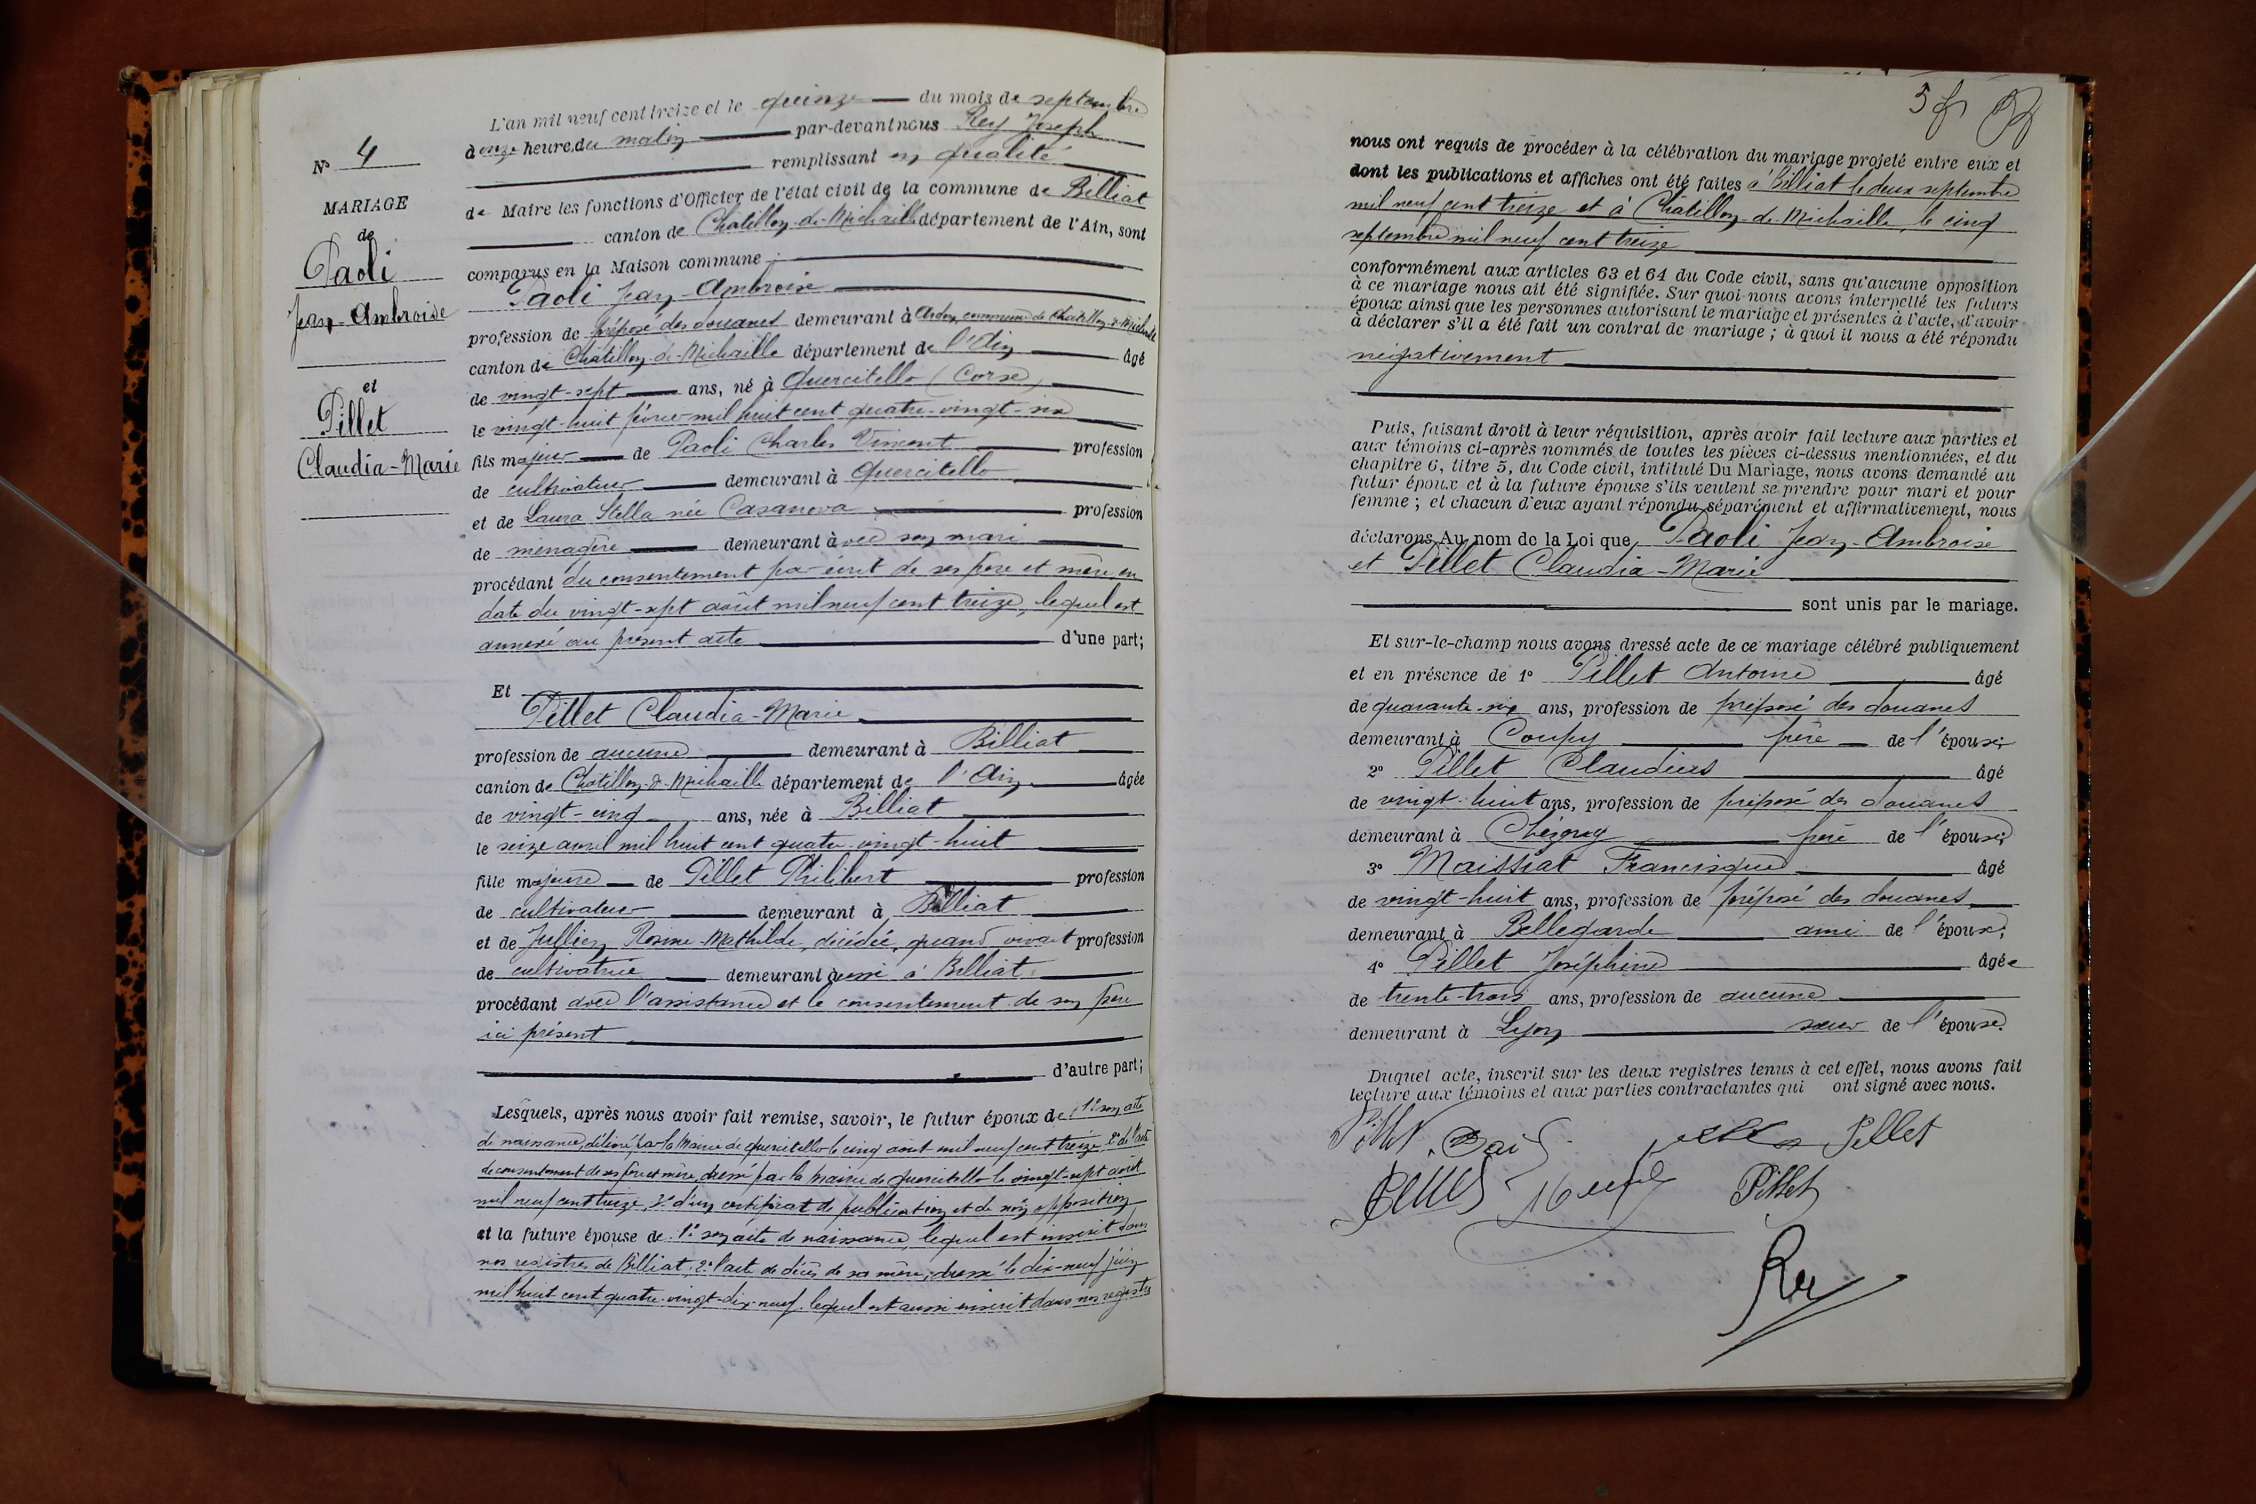 N° 4
MARIAGE
de
Paoli
Jean-Ambroise
et
Pillet
Claudia-Marie
L'an mil neuf cent treize et le quinze du mois de septembre
à onze heure du matin par-devant nous Rey Joseph
remplissant en qualité
de Maire les fonctions d'Officier de l'état civil de la commune de Billiat
canton de Chatillon-de-Michaille département de l'Ain, sont
comparus en la Maison commune :
Paoli Jean-Ambroise
profession de préposé des douanes demeurant à Ardon, commune de Chatillon-de-Michaille
canton de Châtillon-de-Michaille département de l'Ain âgé
de vingt-sept ans, né à Quercitello (Corse)
le vingt-huit février mil huit cent quatre-vingt-six
fils majeur de Paoli Charles Vincent profession
de cultivateur demeurant à Quercitello
et de Laura Stella née Casanova profession
de ménagère demeurant avec son mari
procédant du consentement par écrit de ses père et mère en
date du vingt-sept août mil neuf cent treize, lequel est
annexé au présent acte d'une part;
Et
Pillet Claudia-Marie
profession de aucune demeurant à Billiat
canton de Châtillon-de-Michaille département de l'Ain âgée
de vingt-cinq ans, née à Billiat
le seize avril mil huit cent quatre-vingt-huit
fille majeure de Pillet Philibert profession
de cultivateur demeurant à Billiat
et de Jullien Rosine-Mathilde, décédée, quand vivait profession
de cultivatrice demeurant aussi à Billiat
procédant avec l'assistance et le consentement de son père
ici présent
d'autre part;
Lesquels, après nous avoir fait remise, savoir, le futur époux de : 1° son acte
de naissance, délivré par la Mairie de Quercitello le cinq août mil neuf cent treize 2° de l'acte
de consentement de ses père et mère, dressé par la Mairie de Quercitello le vingt-sept août
mil neuf cent treize, 3° d'un certificat de publication et de non opposition
et la future épouse de : 1° son acte de naissance, lequel est inscrit dans
nos registres de Billiat, 2° l'acte de décès de sa mère, dressé le dix-neuf juin
mil huit cent quatre-vingt-dix-neuf, lequel est aussi inscrit dans nos registres
5
nous ont requis de procéder à la célébration du mariage projeté entre eux et
dont les publications et affiches ont été faites à Billiat le deux septembre
mil neuf cent treize et à Châtillon-de-Michaille, le cinq
septembre mil neuf cent treize
conformément aux articles 63 et 64 du Code civil, sans qu'aucune opposition
à ce mariage nous ait été signifiée. Sur quoi nous avons interpellé les futurs
époux ainsi que les personnes autorisant le mariage et présentes à l'acte, d'avoir
à déclarer s'il a été fait un contrat de mariage ; à quoi il nous a été répondu
négativement
Puis, faisant droit à leur réquisition, après avoir fait lecture aux parties et
aux témoins ci-après nommés de toutes les pièces ci-dessus mentionnées, et du
chapitre 6, titre 5, du Code civil, intitulé Du Mariage, nous avons demandé au
futur époux et à la future épouse s'ils veulent se prendre pour mari et pour
femme ; et chacun d'eux ayant répondu séparément et affirmativement, nous
déclarons Au nom de la Loi que Paoli Jean-Ambroise
et Pillet Claudia-Marie
sont unis par le mariage.
Et sur-le-champ nous avons dressé acte de ce mariage célébré publiquement
et en présence de 1° Pillet Antoine âgé
de quarante-six ans, profession de préposé des douanes
demeurant à Coupy de l'épouse;
2° Pillet Claudius âgé
de vingt-huit ans, profession de préposé des douanes
demeurant à Chézery de l'épouse;
3° Maissiat Francisque âgé
de vingt-huit ans, profession de préposé des douanes
demeurant à Bellegarde ami de l'époux;
4° Pillet Joséphine âgée
de trente-trois ans, profession de aucune
demeurant à Lyon sœur de l'épouse.
Duquel acte, inscrit sur les deux registres tenus à cet effet, nous avons fait
lecture aux témoins et aux parties contractantes qui ont signé avec nous.
Pillet Paoli Pillet
Pillet
Rey